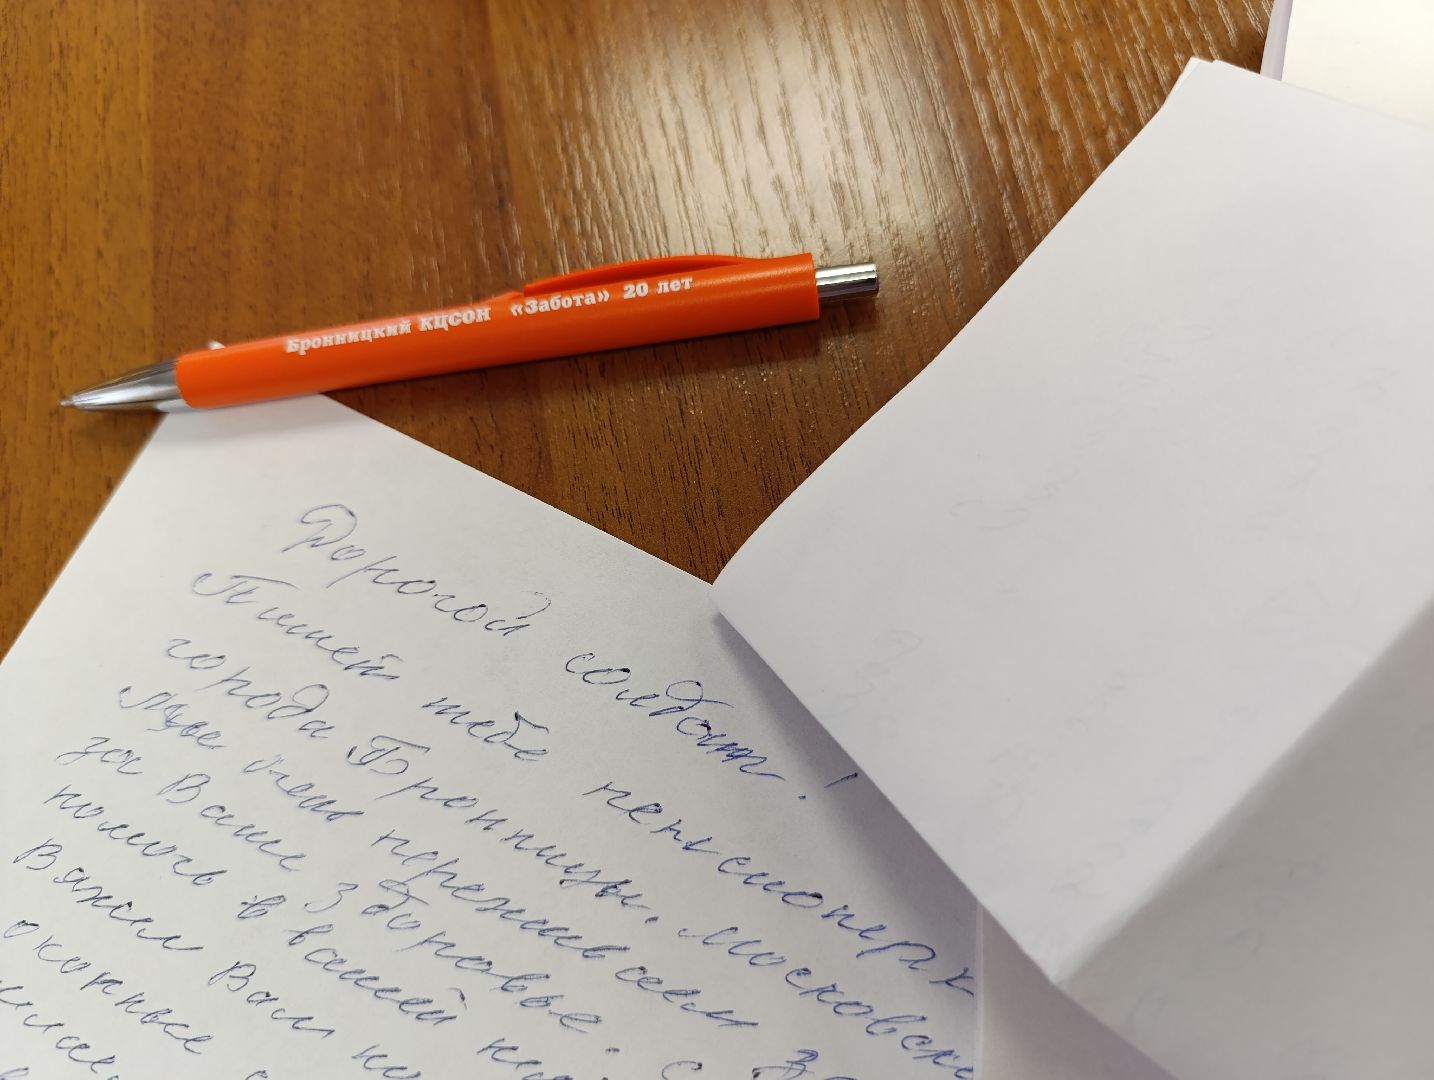 Бронницкий КЦСОН «Забота» 20 лет
Дорогой солдат!
Пишет тебе пенсионерк
города Бронницы. Московско
Мы очень переживаем
за Ваше здоровье. С
помочь в вашей
Вяжем Вам но
окопные с